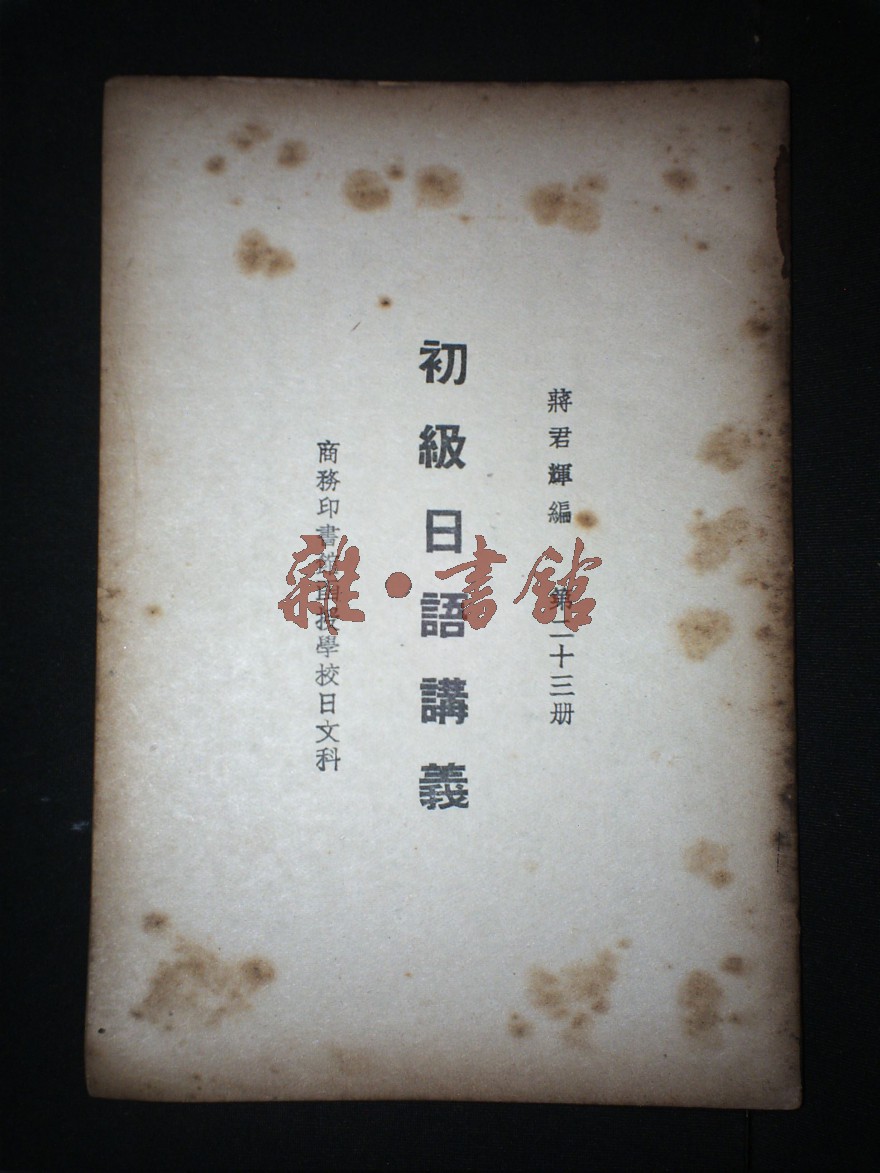 蔣君輝編 第二十三册
初級日語講義
商務印書館函授學校日文科
雜•書館